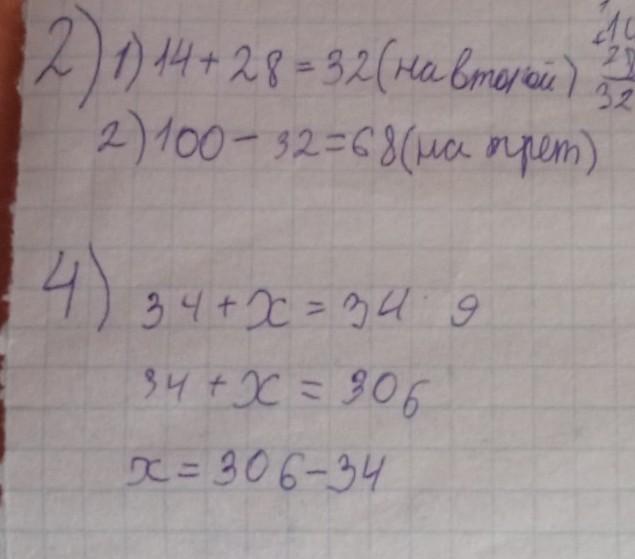 2) 1) 14 + 28 = 32 (на второй)
28
32
2) 100 - 32 = 68 (на трет)
4) 34 + x = 34 · 9
34 + x = 306
x = 306 - 34